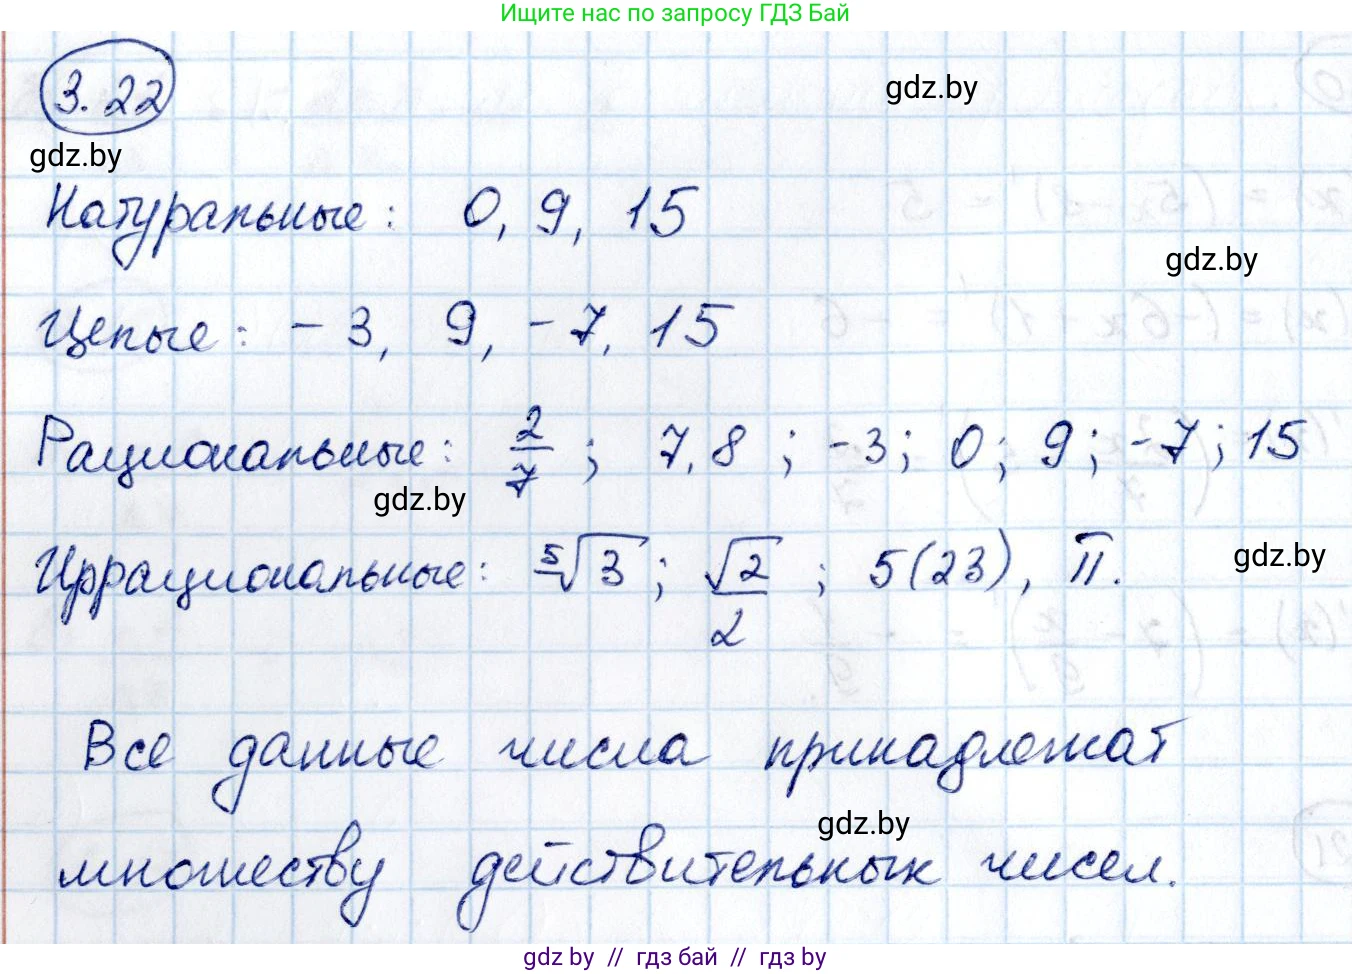 Ищите нас по запросу ГДЗ Бай
3.22
gdz.by
gdz.by
Натуральные: 0, 9, 15
gdz.by
Целые: -3, 9, -7, 15
Рациональные: 2/7; 7,8; -3; 0; 9; -7; 15
gdz.by
Иррациональные: ⁵√3; √2/2; 5(23), π.
gdz.by
Все данные числа принадлежат
gdz.by
множеству действительных чисел.
gdz.by // гдз бай // гдз by